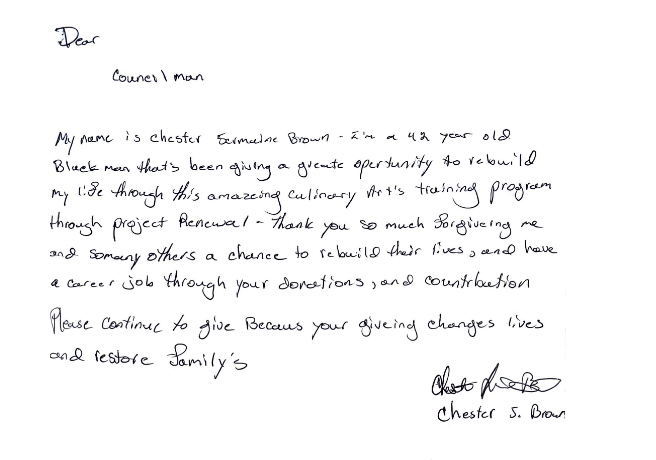 Dear
Councilman
My name is Chester Jermaine Brown - I'm a 42 year old
Black man that's been giving a greate opertunity to rebuild
my life through this amazeing Culinary Art's training program
through project Renewal - Thank you so much forgiveing me
and somany others a chance to rebuild their lives, and have
a career job through your donations, and countribution
Please Continue to give Becaus your giveing changes lives
and restore family's
Chester J. Brown